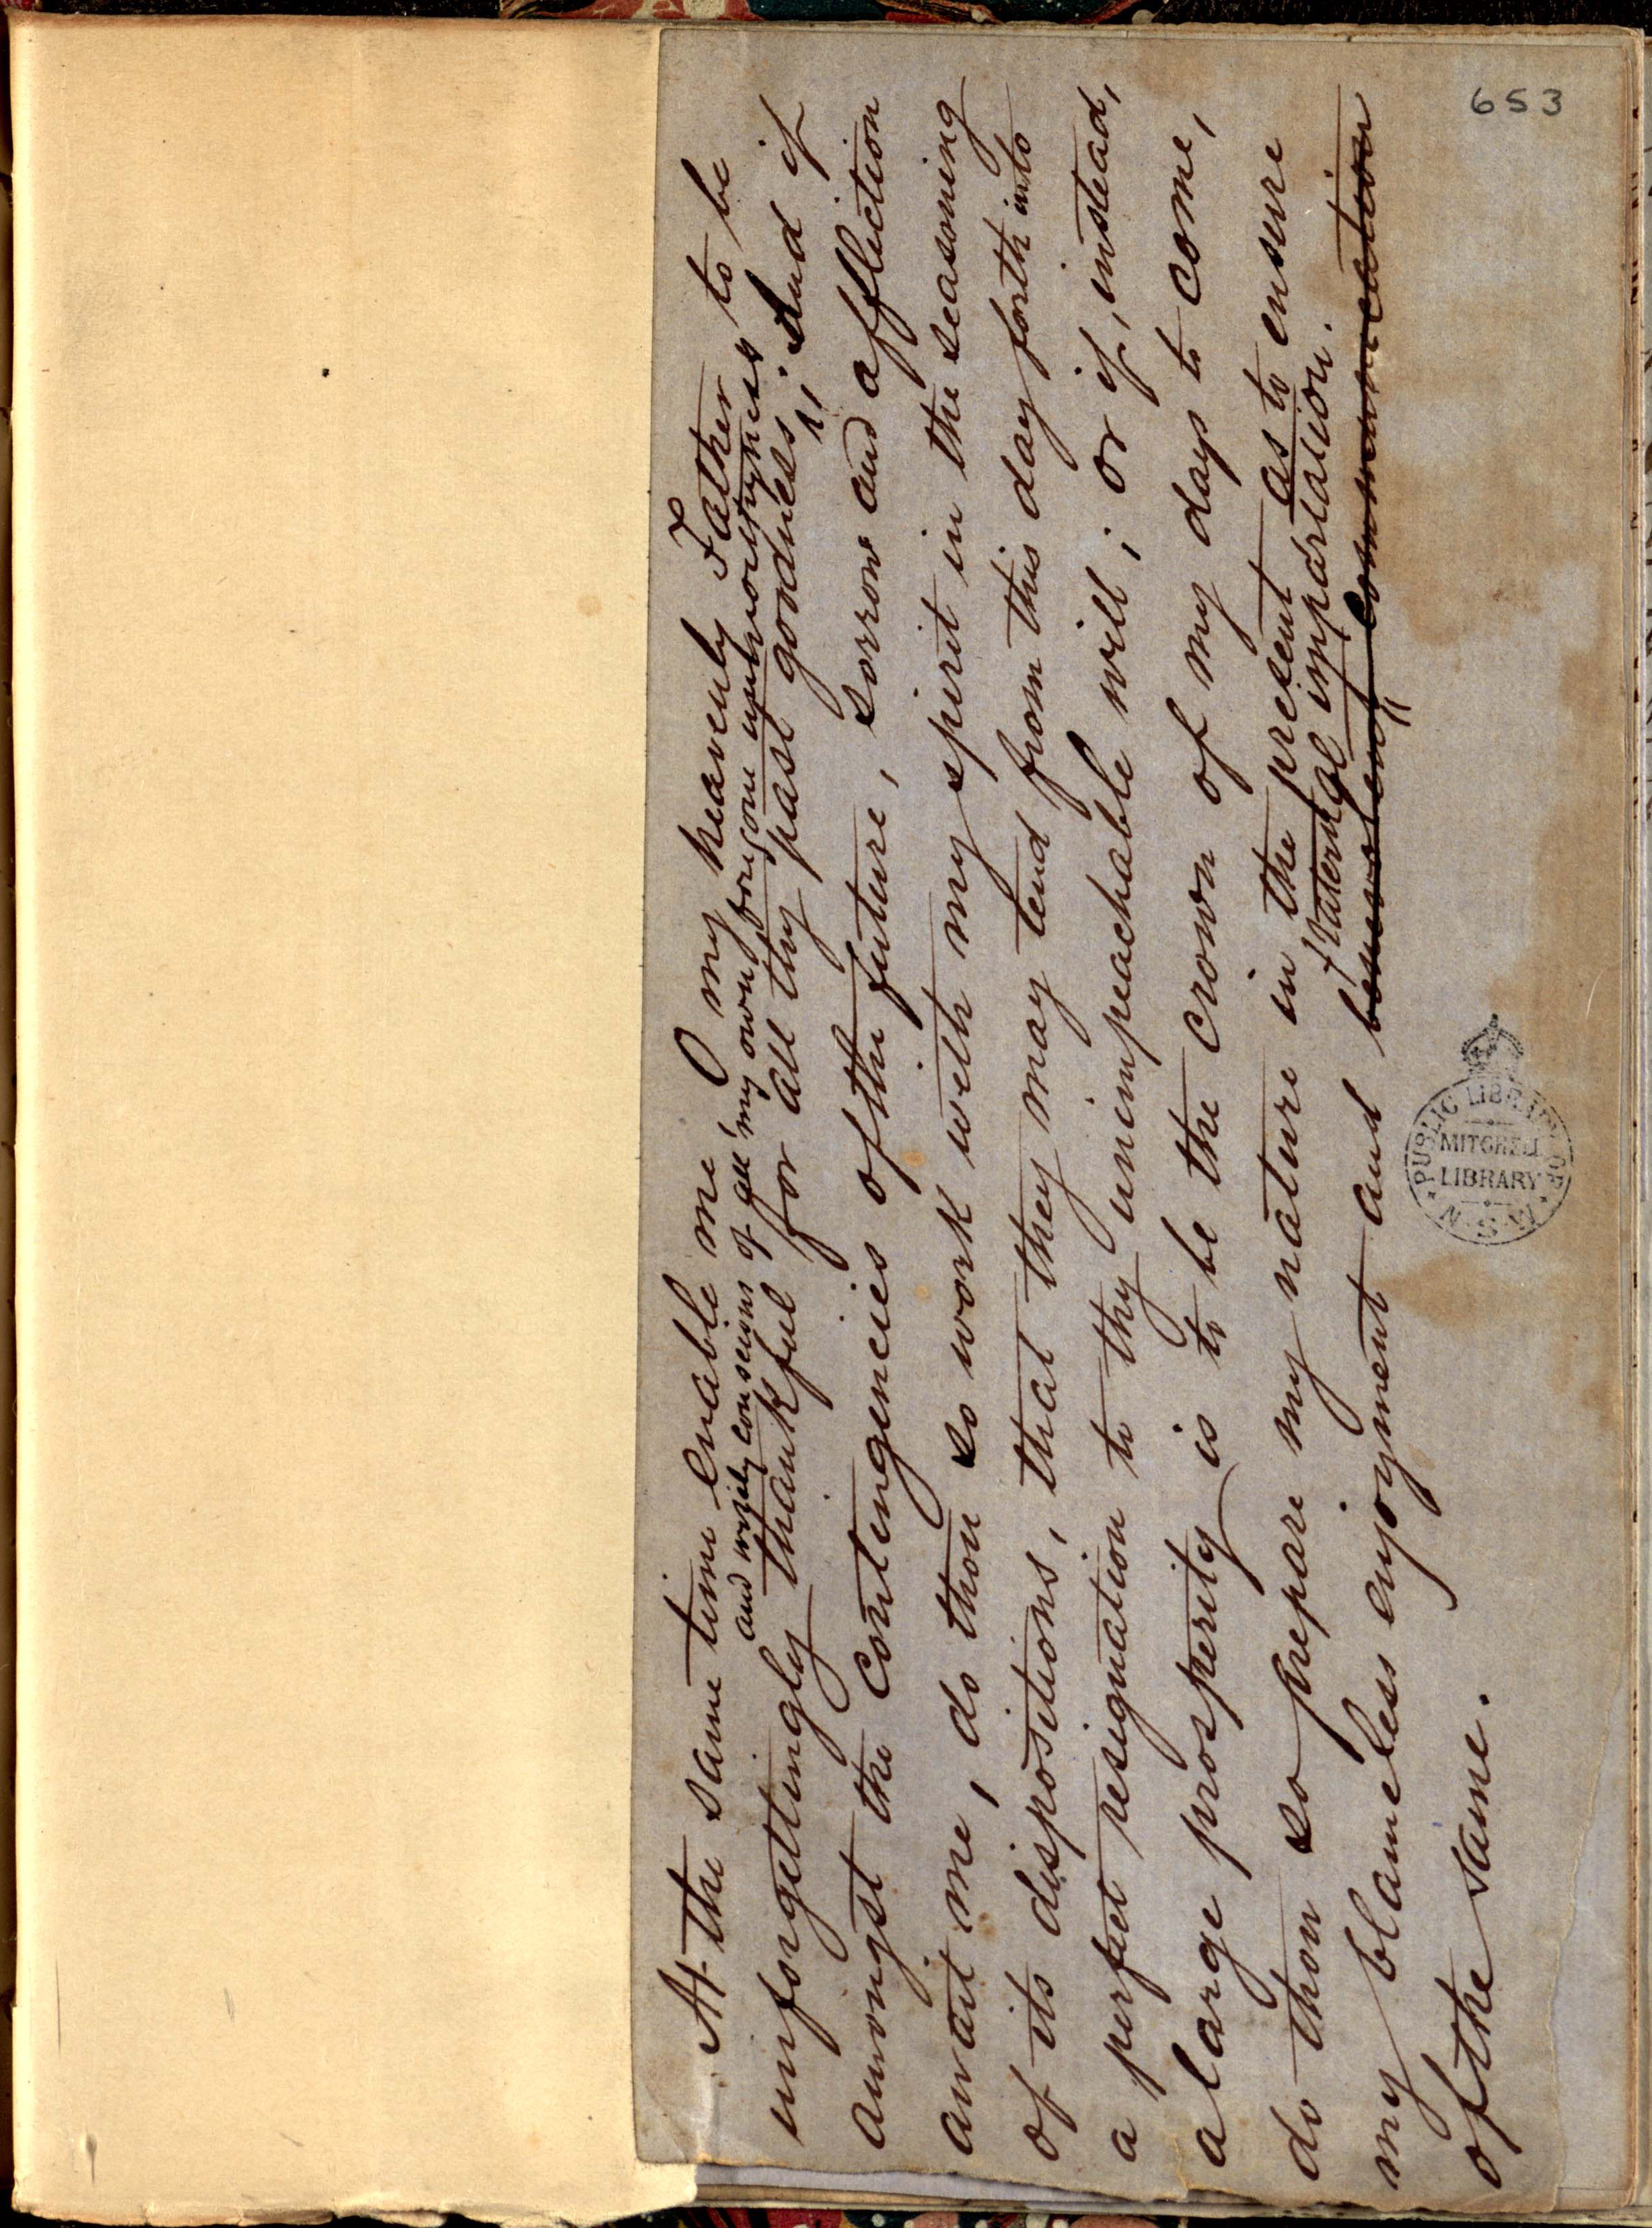 At the same time enable me O my heavenly Father to be
and wisely conscious of all my own foregone unworthiness
unforgettingly thankful for all thy past goodness; And if
amongst the contingencies of the future, sorrow and affliction
await me, do thou so work with my spirit in the seasoning
of its dispositions, that they may tend from this day forth into
a perfect resignation to thy unimpeachable will; or if, instead,
a large prosperity is to be the crown of my days to come,
do thou so prepare my nature in the present as to ensure
fraternal impartation.
my blameless enjoyment and benevolent communication
of the same.
653
PUBLIC LIBRARY OF N.S.W.
MITCHELL
LIBRARY